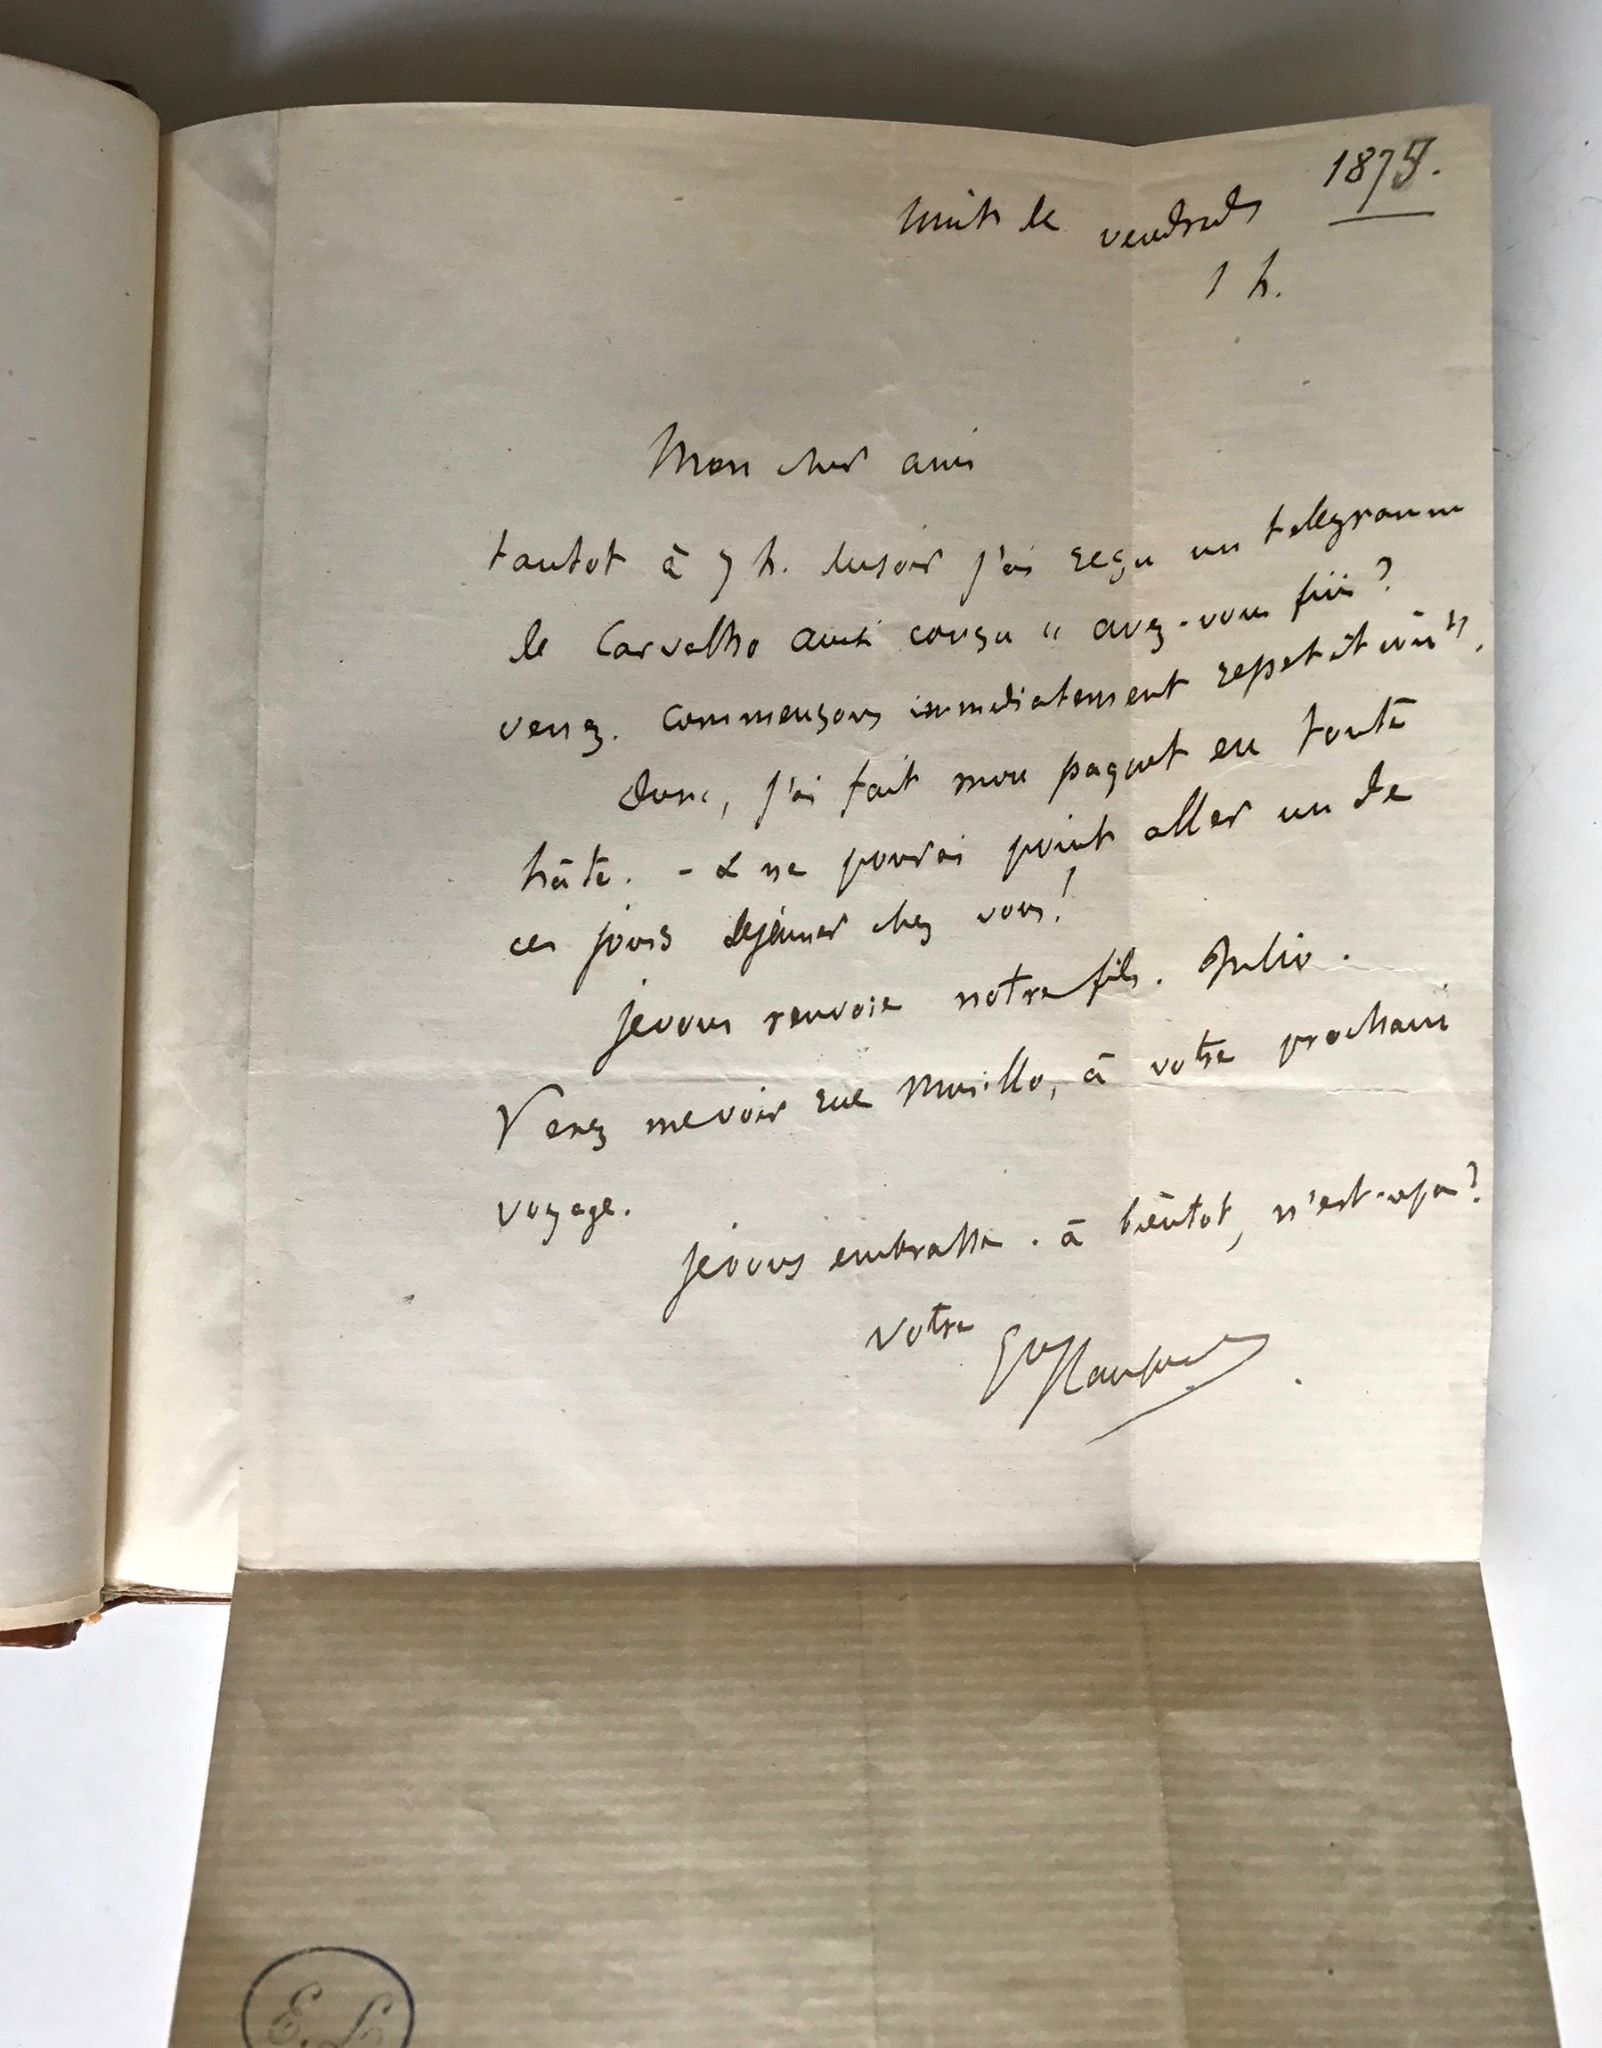 1875.
nuit de vendredi
1 h.
Mon cher ami
tantot à 7 h. du soir j'ai reçu un telegramme
de Carvalho ainsi conçu " avez-vous fini?
venez. Commençons immediatement repetition".
Donc, j'ai fait mon paquet en toute
hâte. - & ne pourai point aller un de
ces jours déjeuner chez vous!
je vous renvoie notre fils. Julio.
Venez me voir rue Murillo, à votre prochain
voyage.
je vous embrasse. à bientot, n'est-ce pas?
votre Gve Flaubert
E. L